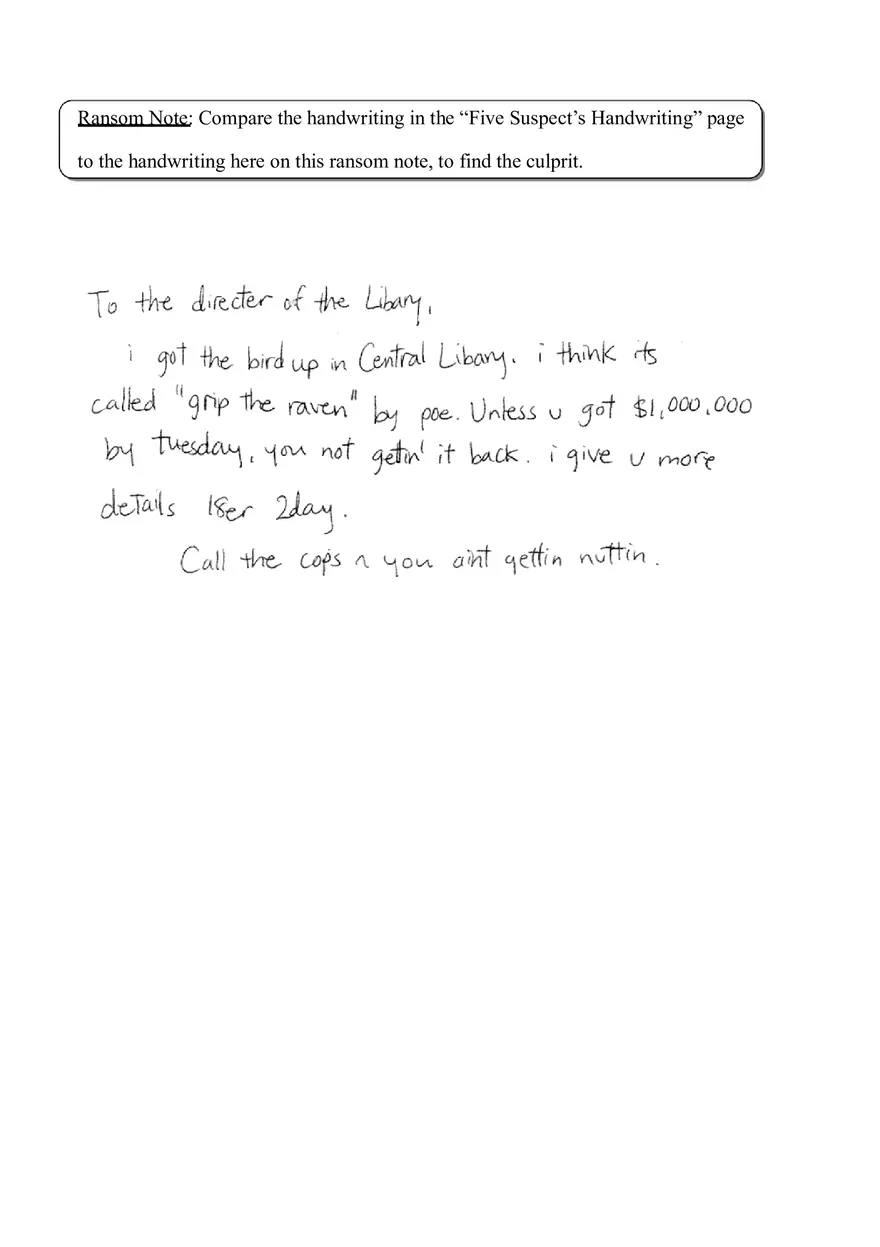 Ransom Note: Compare the handwriting in the “Five Suspect’s Handwriting” page
to the handwriting here on this ransom note, to find the culprit.
To the directer of the Libary,
i got the bird up in Central Libary. i think its
called "grip the raven" by poe. Unless u got $1,000,000
by tuesday, you not getin' it back. i give u more
details l8er 2day.
Call the cops n you aint gettin nuttin.